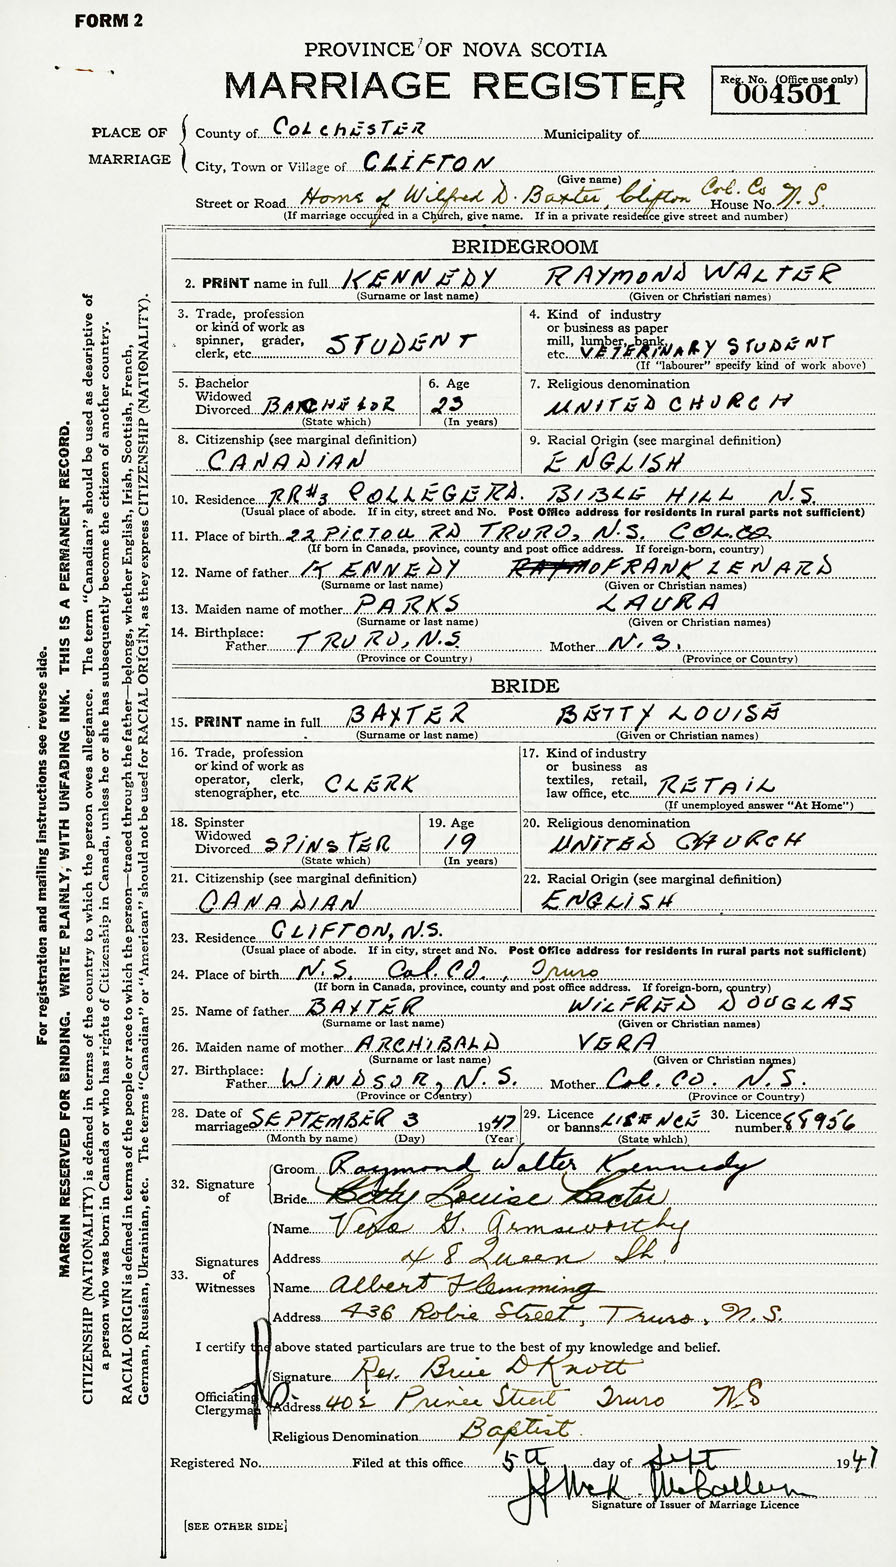 FORM 2
PROVINCE OF NOVA SCOTIA
MARRIAGE REGISTER
Reg. No. (Office use only)
004501
PLACE OF MARRIAGE
County of COLCHESTER Municipality of
City, Town or Village of CLIFTON
(Give name)
Street or Road Home of Wilfred D. Baxter, Clifton Col. Co House No. N.S.
(If marriage occurred in a Church, give name. If in a private residence give street and number)
BRIDEGROOM
2. PRINT name in full KENNEDY RAYMOND WALTER
(Surname or last name) (Given or Christian names)
3. Trade, profession or kind of work as spinner, grader, clerk, etc. STUDENT
4. Kind of industry or business as paper mill, lumber, bank, etc. VETERINARY STUDENT
(If "labourer" specify kind of work above)
5. Bachelor Widowed Divorced BATCHELOR
(State which)
6. Age 23
(In years)
7. Religious denomination
UNITED CHURCH
8. Citizenship (see marginal definition)
CANADIAN
9. Racial Origin (see marginal definition)
ENGLISH
10. Residence RR#3 COLLEGE RD. BIBLE HILL N.S.
(Usual place of abode. If in city, street and No. Post Office address for residents in rural parts not sufficient)
11. Place of birth 22 PICTOU RD TRURO, N.S. COL. CO
(If born in Canada, province, county and post office address. If foreign-born, country)
12. Name of father KENNEDY FRANK LENARD
(Surname or last name) (Given or Christian names)
13. Maiden name of mother PARKS LAURA
(Surname or last name) (Given or Christian names)
14. Birthplace:
Father TRURO, N.S. Mother N.S.
(Province or Country) (Province or Country)
BRIDE
15. PRINT name in full BAXTER BETTY LOUISE
(Surname or last name) (Given or Christian names)
16. Trade, profession or kind of work as operator, clerk, stenographer, etc. CLERK
17. Kind of industry or business as textiles, retail, law office, etc. RETAIL
(If unemployed answer "At Home")
18. Spinster Widowed Divorced SPINSTER
(State which)
19. Age 19
(In years)
20. Religious denomination
UNITED CHURCH
21. Citizenship (see marginal definition)
CANADIAN
22. Racial Origin (see marginal definition)
ENGLISH
23. Residence CLIFTON, N.S.
(Usual place of abode. If in city, street and No. Post Office address for residents in rural parts not sufficient)
24. Place of birth N.S. Col. CO., Truro
(If born in Canada, province, county and post office address. If foreign-born, country)
25. Name of father BAXTER WILFRED DOUGLAS
(Surname or last name) (Given or Christian names)
26. Maiden name of mother ARCHIBALD VERA
(Surname or last name) (Given or Christian names)
27. Birthplace:
Father WINDSOR, N.S. Mother Col. CO. N.S.
(Province or Country) (Province or Country)
28. Date of marriage SEPTEMBER 3 1947
(Month by name) (Day) (Year)
29. Licence or banns LISENCE
(State which)
30. Licence number 88956
32. Signature of
Groom Raymond Walter Kennedy
Bride Betty Louise Baxter
33. Signatures of Witnesses
Name Vera G. Armsworthy
Address 48 Queen St.
Name Albert Flemming
Address 436 Robie Street, Truro, N.S.
I certify the above stated particulars are true to the best of my knowledge and belief.
Officiating Clergyman
Signature Rev. Brice D Knott
Address 402 Prince Street Truro N.S
Religious Denomination Baptist
Registered No. Filed at this office 5th day of Sept 1947
Signature of Issuer of Marriage Licence
[SEE OTHER SIDE]
For registration and mailing instructions see reverse side.
MARGIN RESERVED FOR BINDING. WRITE PLAINLY, WITH UNFADING INK. THIS IS A PERMANENT RECORD.
CITIZENSHIP (NATIONALITY) is defined in terms of the country to which the person owes allegiance. The term "Canadian" should be used as descriptive of
a person who was born in Canada or who has rights of Citizenship in Canada, unless he or she has subsequently become the citizen of another country.
RACIAL ORIGIN is defined in terms of the people or race to which the person—traced through the father—belongs, whether English, Irish, Scottish, French,
German, Russian, Ukrainian, etc. The terms "Canadian" or "American" should not be used for RACIAL ORIGIN, as they express CITIZENSHIP (NATIONALITY).